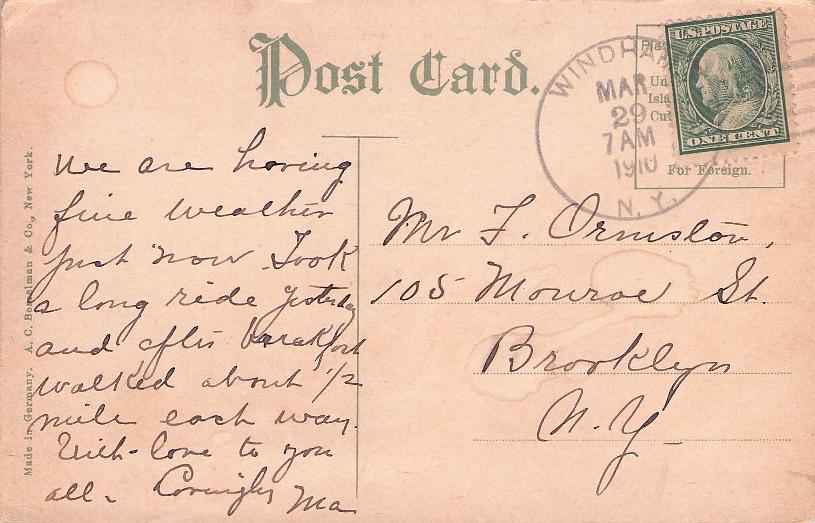 Post Card.
WINDHA
MAR
29
7AM
1910
N.Y.
U.S. POSTAGE
ONE CENT
Pla
Un
Isla
Cu
For Foreign.
Made in Germany. A. C. Bosselman & Co., New York.
We are having
fine weather
just now Took
a long ride yesterday
and after breakfast
walked about 1/2
mile each way.
With love to you
all - Lovingly Ma
Mr F. Ormston,
105 Monroe St.
Brooklyn
N. Y.